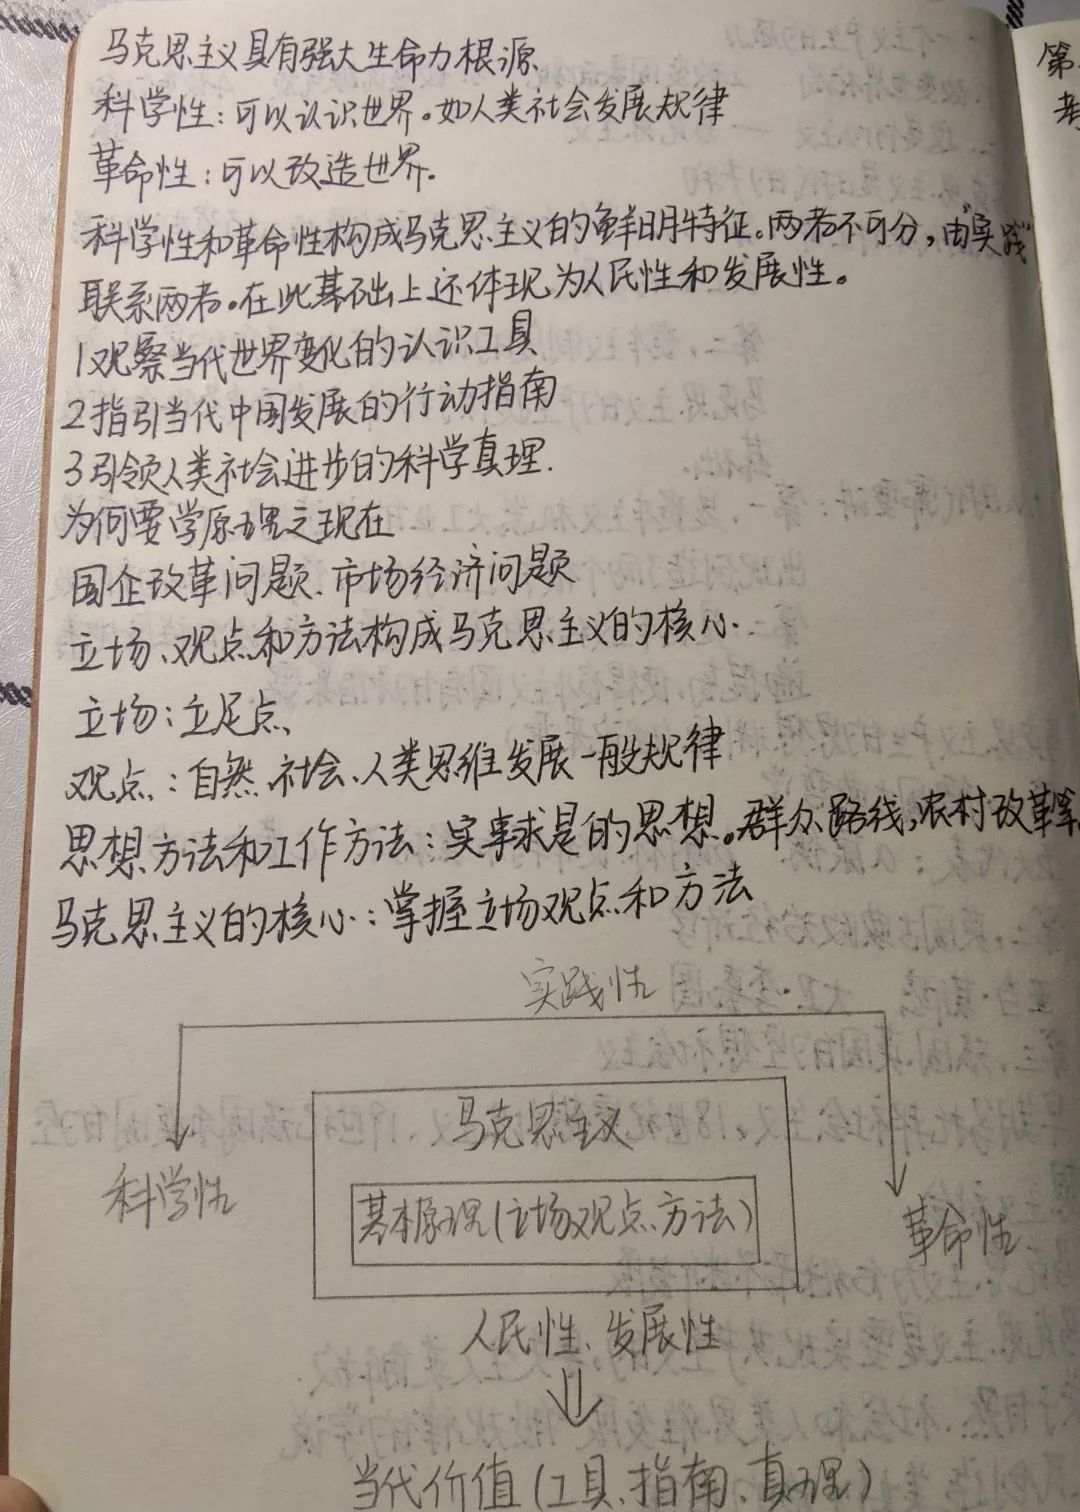 马克思主义具有强大生命力根源
科学性：可以认识世界。如人类社会发展规律
革命性：可以改造世界.
科学性和革命性构成马克思主义的鲜明特征。两者不可分，由"实践"
联系两者。在此基础上还体现为人民性和发展性。
1观察当代世界变化的认识工具
2指引当代中国发展的行动指南
3引领人类社会进步的科学真理.
为何要学原理之现在
国企改革问题、市场经济问题
立场、观点和方法构成马克思主义的核心.
立场：立足点、
观点：自然、社会、人类思维发展一般规律
思想方法和工作方法：实事求是的思想。群众路线，农村改革等
马克思主义的核心：掌握立场观点和方法
实践性
马克思主义
科学性
基本原理（立场观点、方法）
革命性
人民性、发展性
当代价值（工具、指南、真理）
第
考